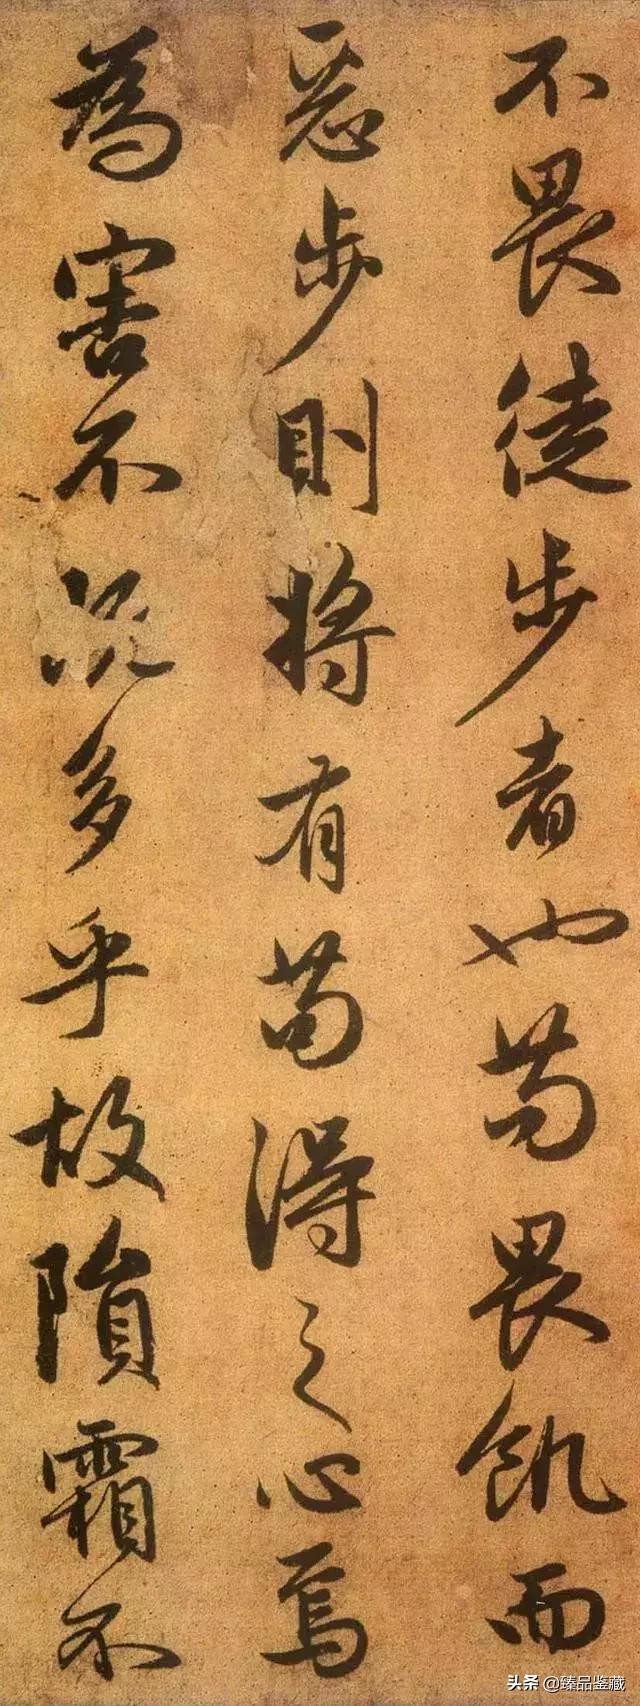 不畏徒步者也苟畏飢而
惡步則將有苟得之心焉
為害不既多乎故隕霜不
头条 @臻品鉴藏